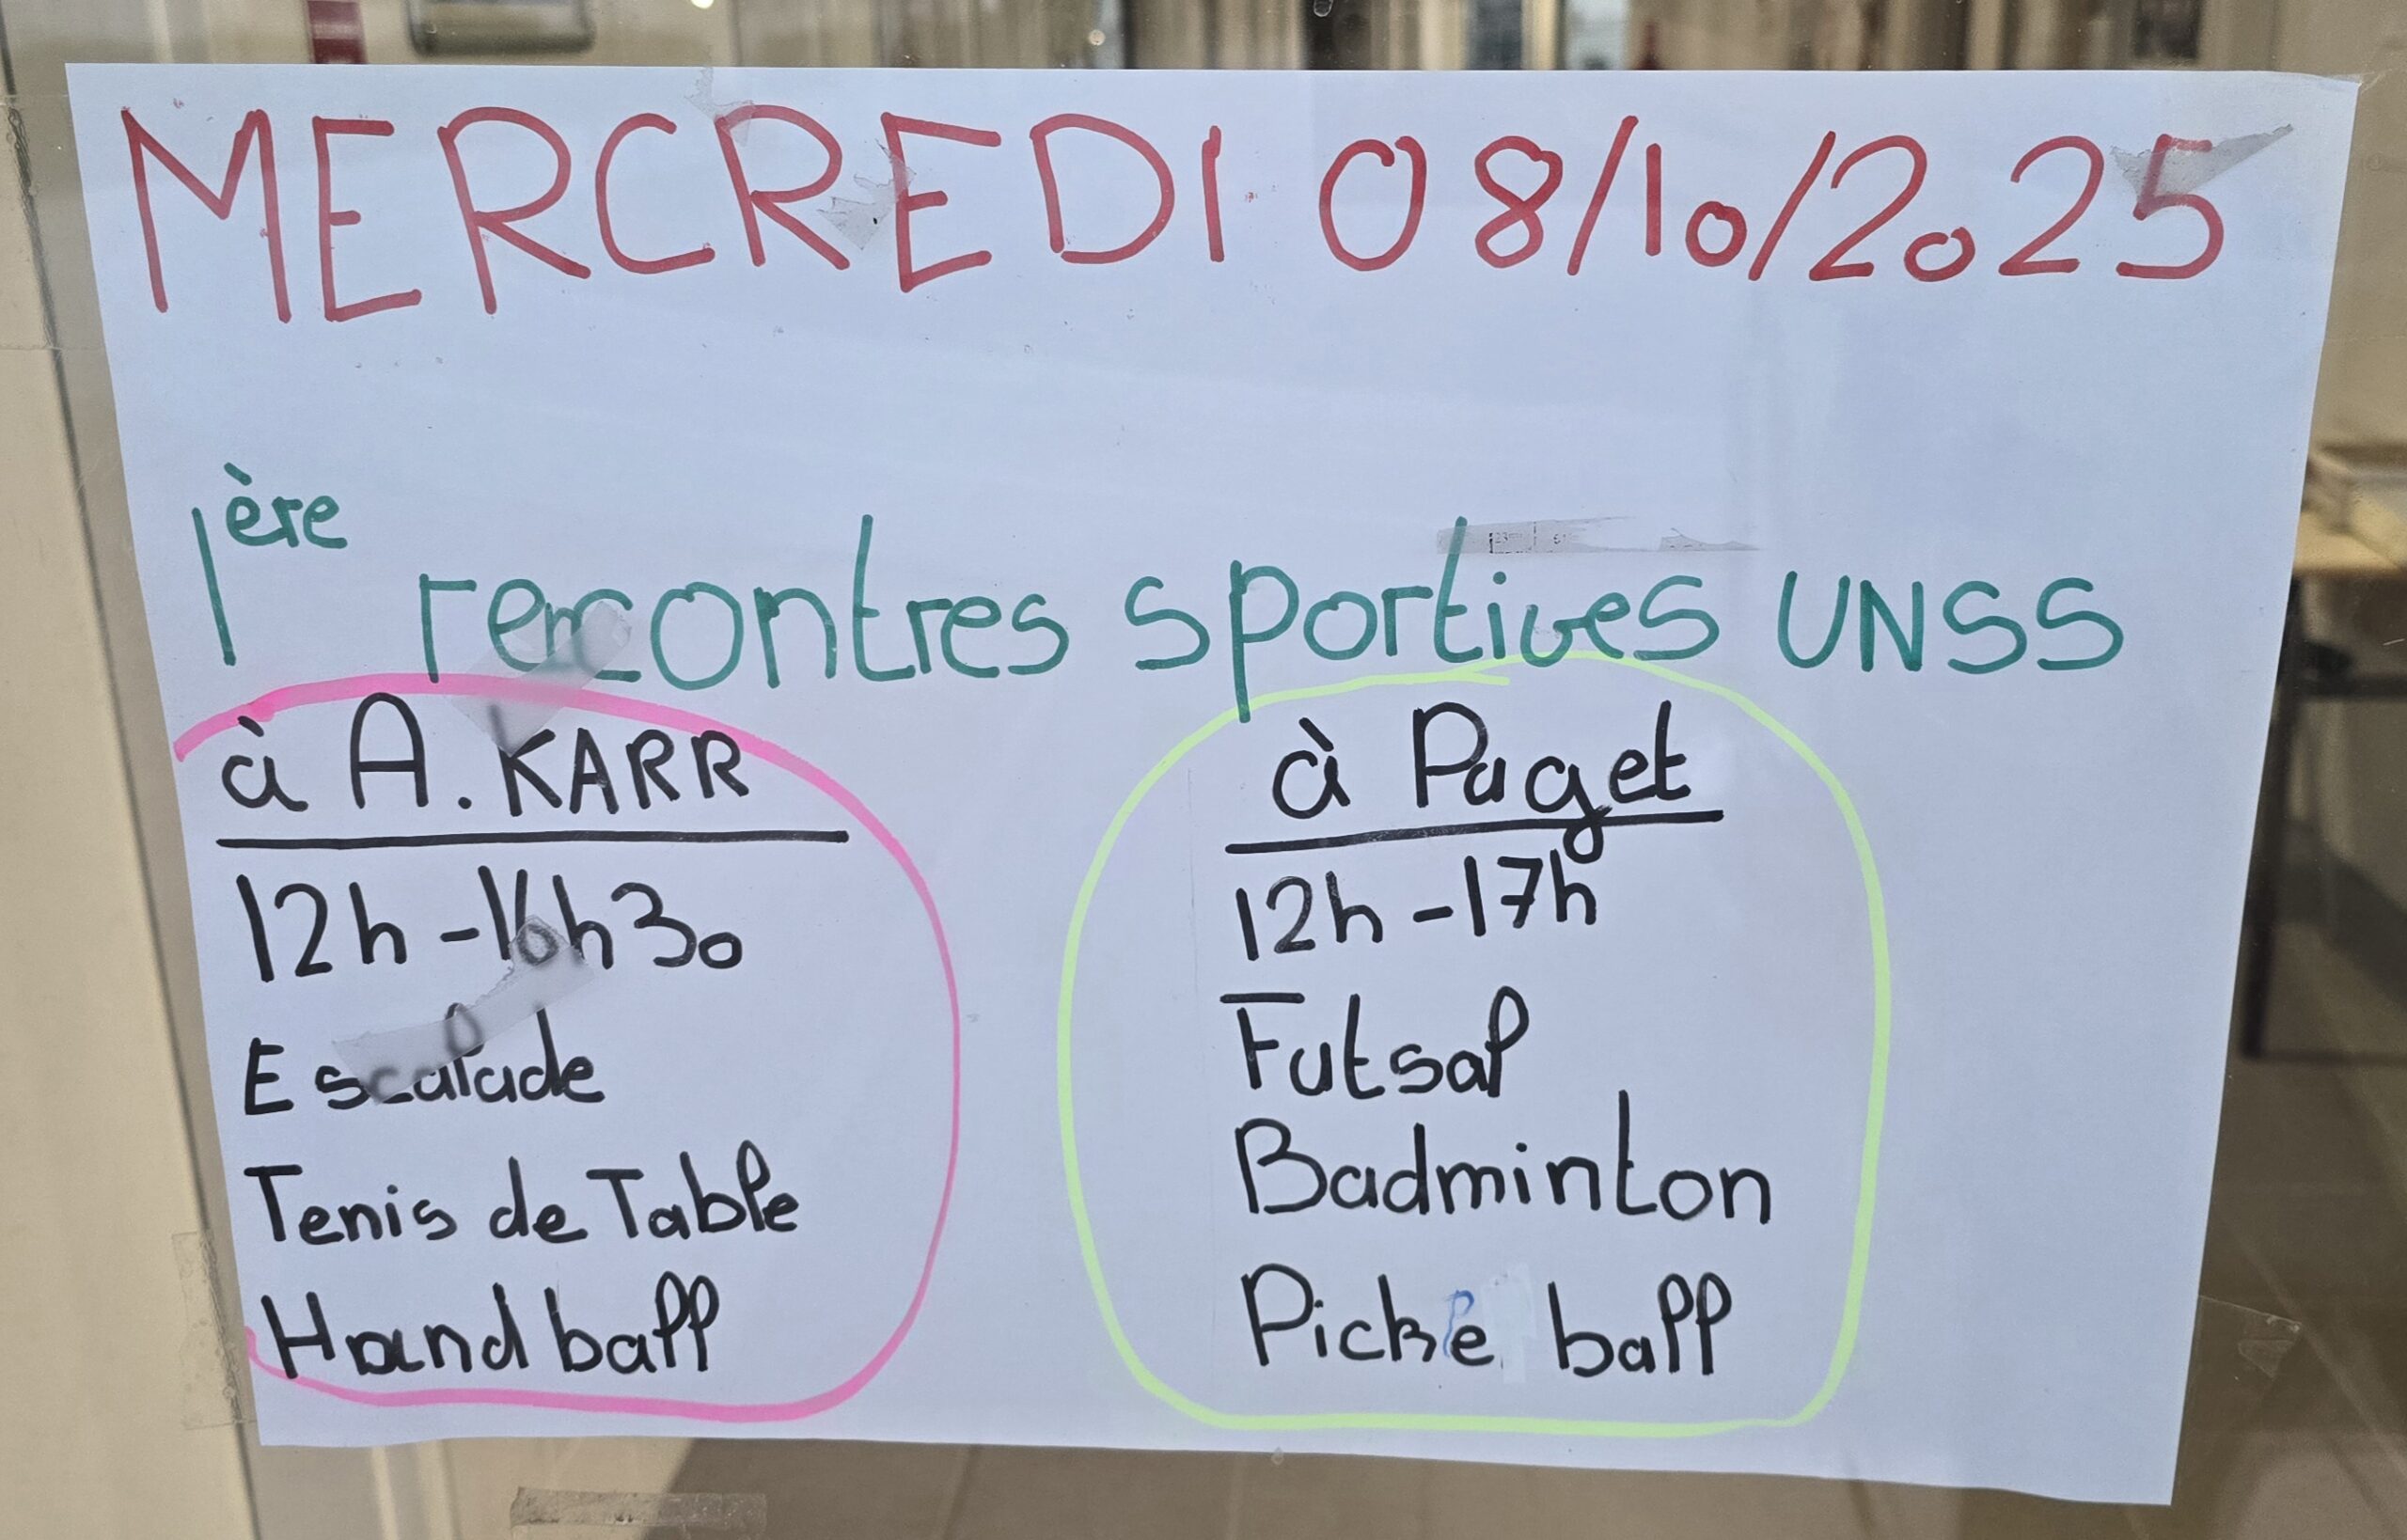 MERCREDI 08/10/2025
1ère rencontres sportives UNSS
à A. KARR
12h-16h30
Escalade
Tenis de Table
Hand ball
à Paget
12h-17h
Futsal
Badminton
Pickle ball